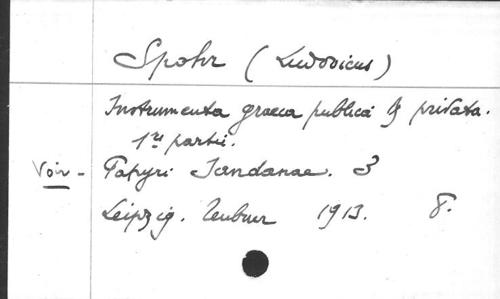 Spohr (Ludovicus)
Instrumenta graeca publica & privata.
1re partie.
Voir - Papyri Iandanae. 3
Leipzig. Teubner 1913. 8.